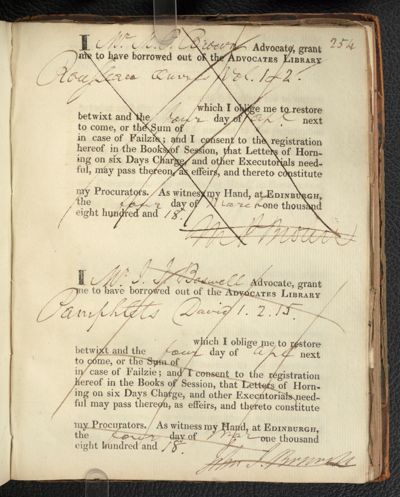 254
I Mr. R. P. Brown Advocate, grant
me to have borrowed out of the ADVOCATES LIBRARY
Vol. 1 & 2.
which I oblige me to restore
betwixt and the four day of next
to come, or the Sum of
in case of Failzie; and I consent to the registration
hereof in the Books of Session, that Letters of Horn-
ing on six Days Charge, and other Executorials need-
ful, may pass thereon, as effeirs, and thereto constitute
my Procurators. As witness my Hand, at EDINBURGH,
the four day of March one thousand
eight hundred and 18.
I Mr. J. J. Boswell Advocate, grant
me to have borrowed out of the ADVOCATES LIBRARY
Pamphlets David 1. 2. 15.
which I oblige me to restore
betwixt and the four day of next
to come, or the Sum of
in case of Failzie; and I consent to the registration
hereof in the Books of Session, that Letters of Horn-
ing on six Days Charge, and other Executorials need-
ful may pass thereon, as effeirs, and thereto constitute
my Procurators. As witness my Hand, at EDINBURGH,
the four day of one thousand
eight hundred and 18.
Boswell